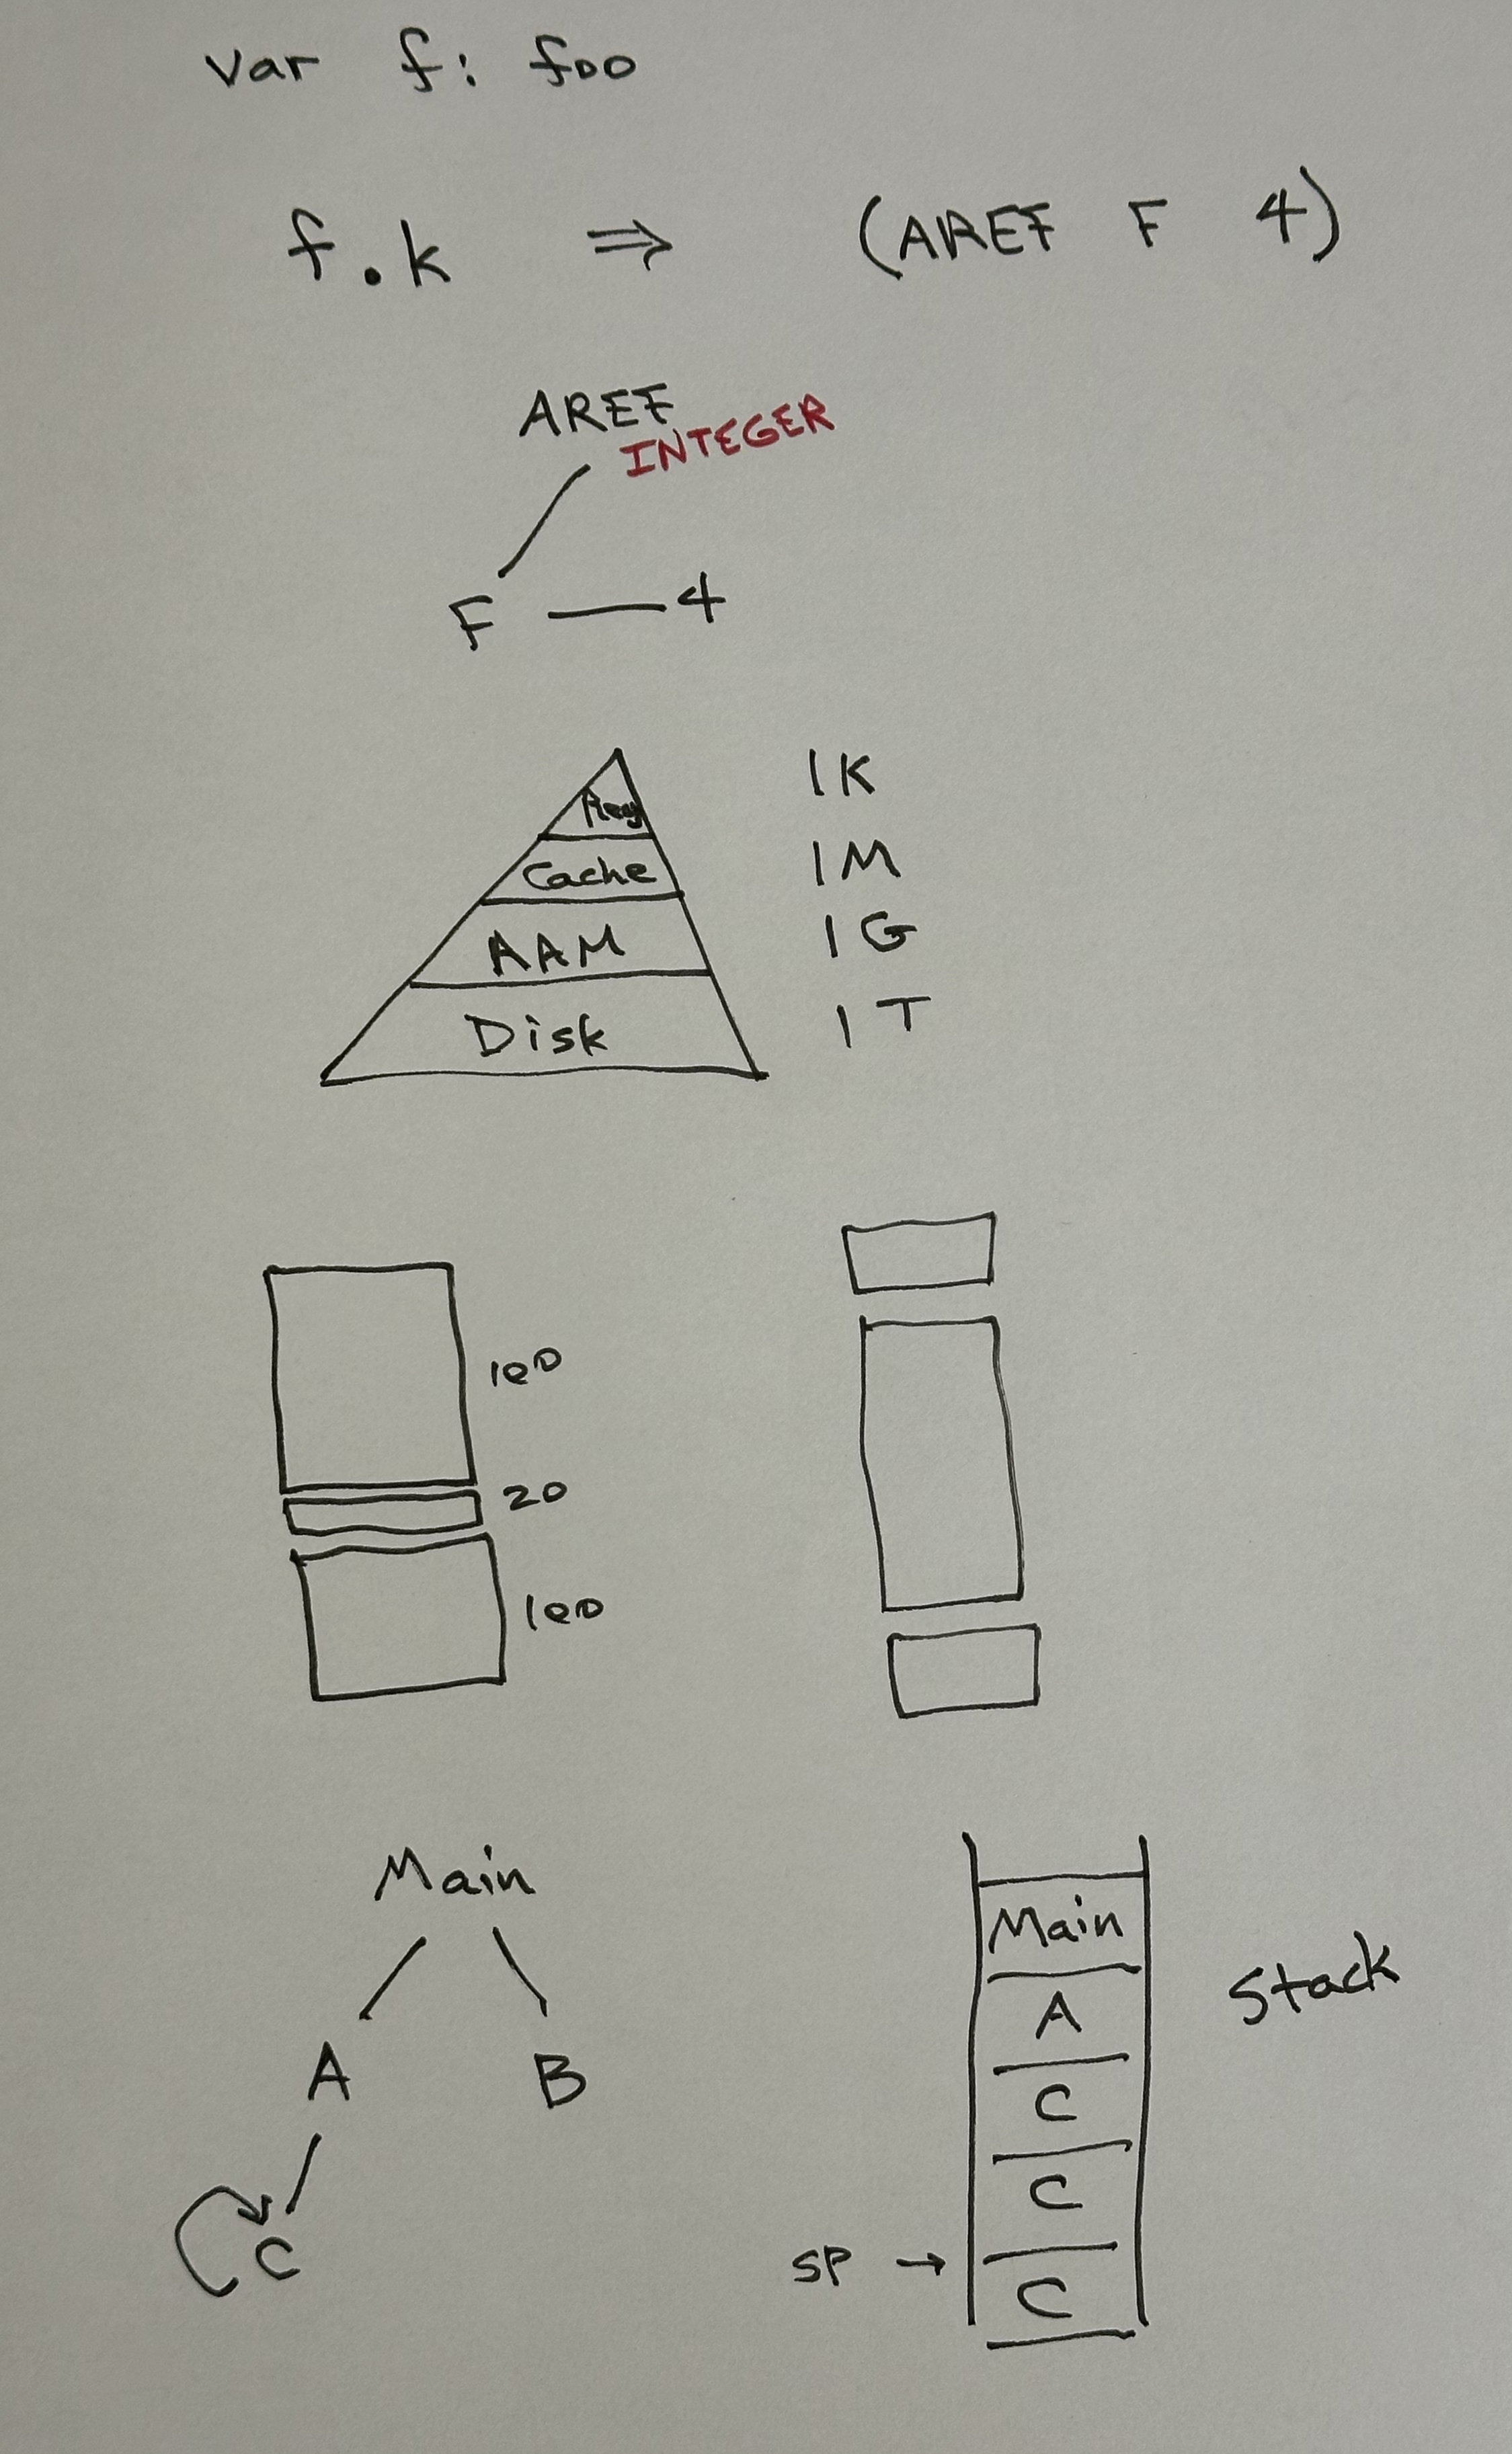 var f: foo
f.k ⇒ (AREF F 4)
AREF
INTEGER
F 4
Reg 1K
Cache 1M
RAM 1G
Disk 1T
100
20
100
Main
A B
C
Main
A
C
C
C
Stack
SP →